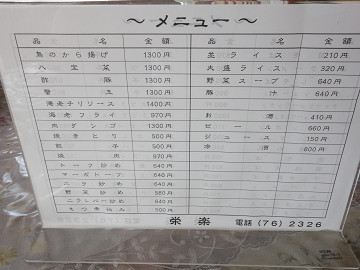 ～メニュー～
品 名 金額 品 名 金額
鳥のから揚げ 1300円 並ライス 210円
八宝菜 1300円 大盛ライス 320円
酢豚 1300円 野菜スープ 640円
蟹玉 1300円 豚汁 640円
海老チリソース 1400円
海老フライ 970円 お酒 410円
肉ダンゴ 1300円 ビール 660円
焼きとり 500円 ジュース 150円
餃子 500円 冷酒 800円
焼肉 970円
トーフ炒め 640円
マーボトーフ 640円
ニラ炒め 640円
野菜炒め 580円
ニラレバー炒め 640円
もつ煮込み 500円
栄楽 電話(76)2326